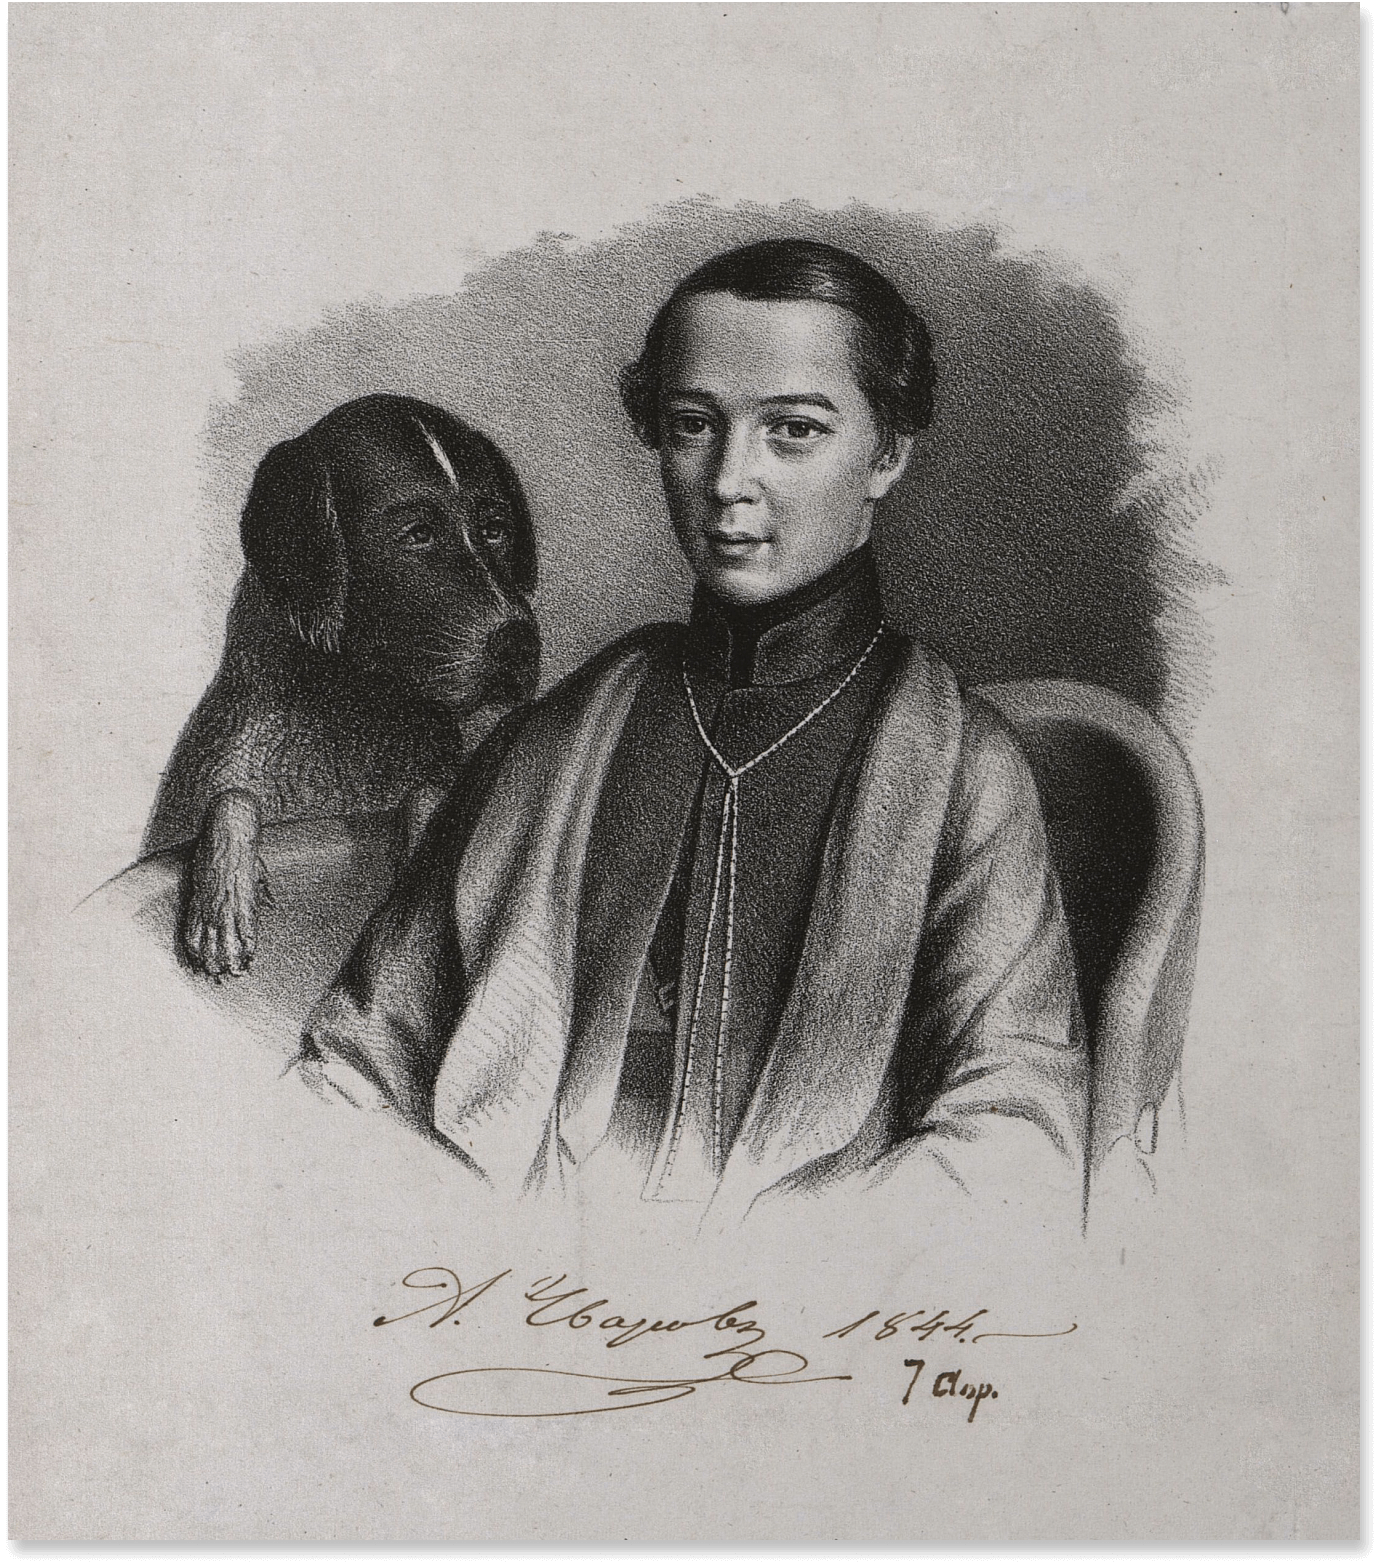 А. Уваровъ 1844.
7 Апр.